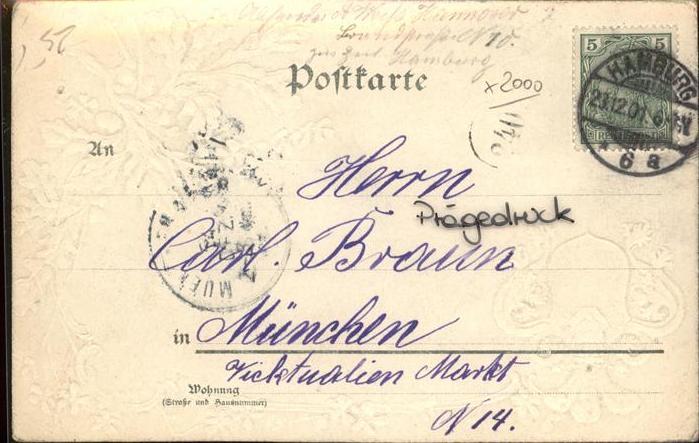 Hannover
Brandstraße N 10.
zur Zeit Hamburg
Postkarte
x2000
5 5
HAMBURG
23.12.01.
6 a
An
Herrn
Prägedruck
Carl. Braun
MUEN
in München
Vicktualien Markt
Wohnung
(Straße und Hausnummer)
N 14.